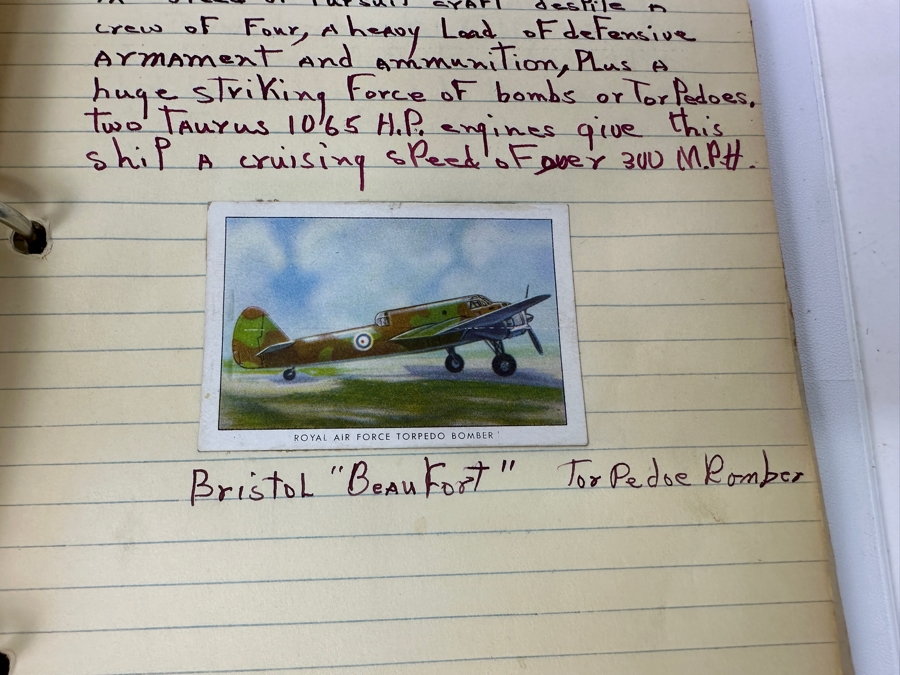 of Pursuit craft despite A
crew of Four, A heavy Load of defensive
Armament and ammunition, Plus A
huge striking Force of bombs or Torpedoes.
two Taurus 1065 H.P. engines give this
ship A cruising speed of over 300 M.P.H.
ROYAL AIR FORCE TORPEDO BOMBER
Bristol "Beaufort" Torpedoe Bomber